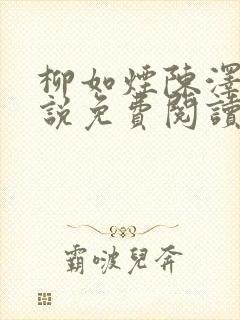 柳如煙陳澤
說免費閱讀
霸啵兒奔